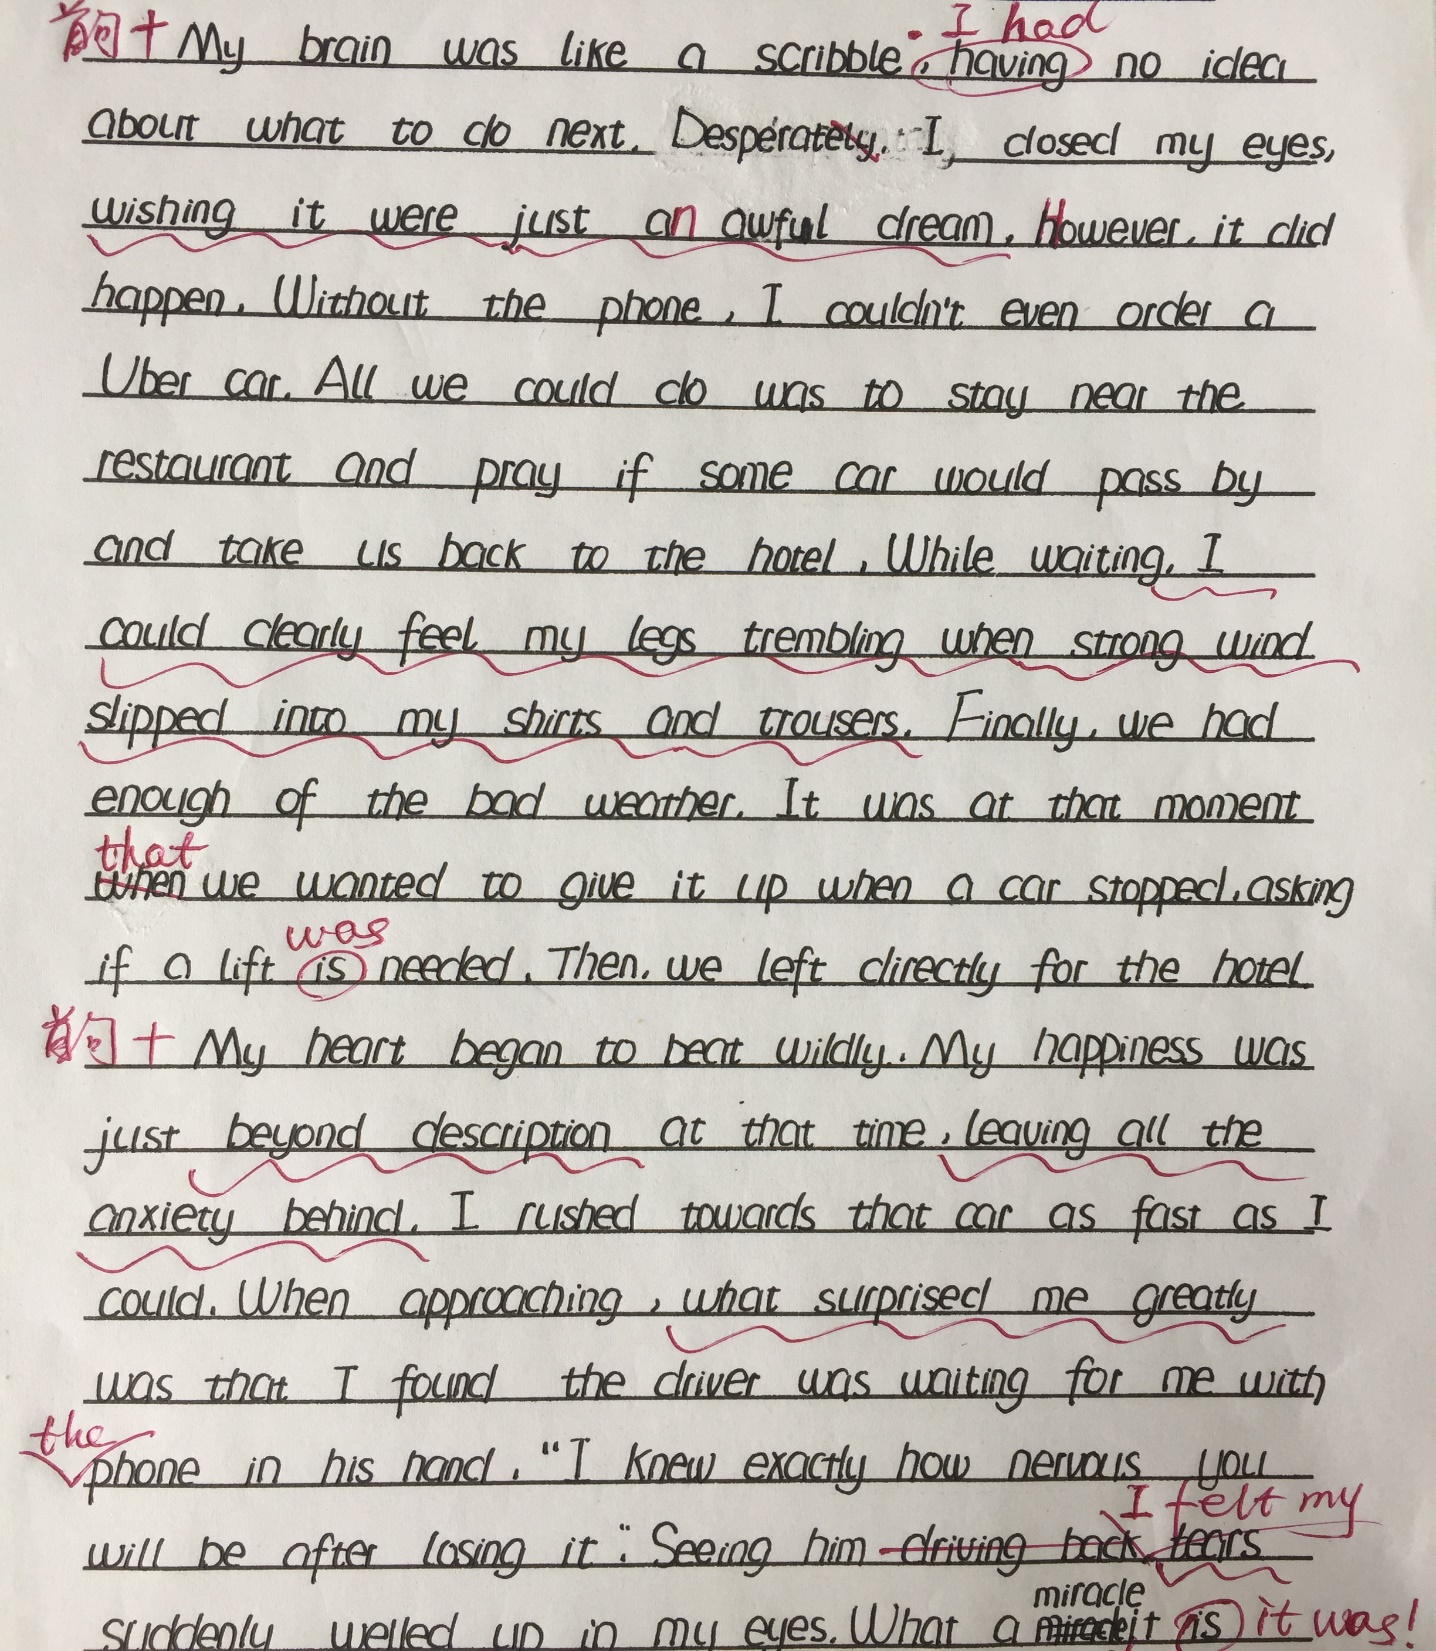 首句+ My brain was like a scribble, having no idea
. I had
about what to do next. Desperately. I, closed my eyes,
wishing it were just an awful dream. However, it did
happen. Without the phone, I couldn't even order a
Uber car. All we could do was to stay near the
restaurant and pray if some car would pass by
and take us back to the hotel. While waiting, I
could clearly feel my legs trembling when strong wind
slipped into my shirts and trousers. Finally, we had
enough of the bad weather. It was at that moment
that
when we wanted to give it up when a car stopped, asking
was
if a lift is needed. Then, we left directly for the hotel
首句+ My heart began to beat wildly. My happiness was
just beyond description at that time, leaving all the
anxiety behind. I rushed towards that car as fast as I
could. When approaching, what surprised me greatly
was that I found the driver was waiting for me with
the
phone in his hand. "I knew exactly how nervous you
I felt my
will be after losing it". Seeing him driving back, tears
miracle
suddenly welled up in my eyes. What a miracle it is it was!